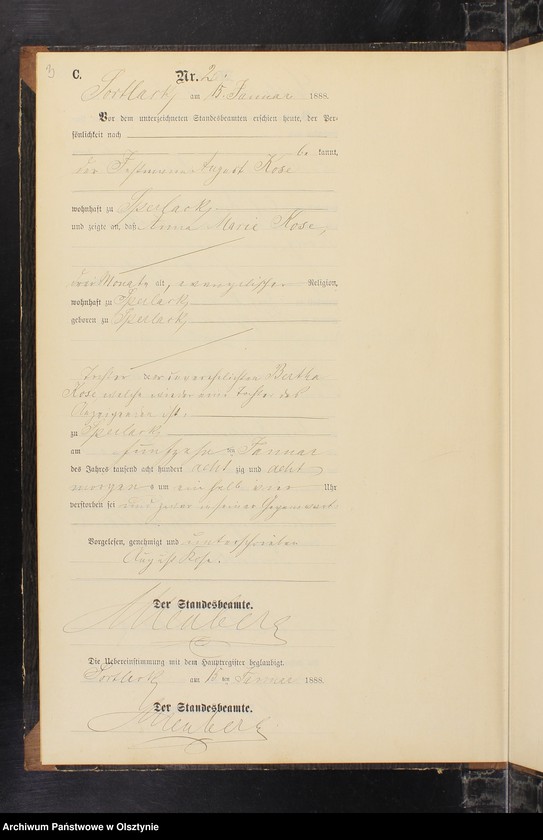 3
C.
Nr. 2
Sortlack am 15 Januar 1888.
Vor dem unterzeichneten Standesbeamten erschien heute, der Per-
sönlichkeit nach
be kannt,
der August Kose
wohnhaft zu Sperlack
und zeigte an, daß Anna Marie Kose,
drei Monate alt, evangelischer Religion,
wohnhaft zu Sperlack
geboren zu Sperlack
Tochter der unverehelichten Bertha
Kose welche wieder eine Tochter des
Anzeigenden ist.
zu Sperlack
am fünfzehn ten Januar
des Jahres tausend acht hundert acht zig und acht
morgens um ein halb vier Uhr
verstorben sei und zwar in seiner Gegenwart.
Vorgelesen, genehmigt und unterschrieben
August Kose.
Der Standesbeamte.
Die Uebereinstimmung mit dem Hauptregister beglaubigt.
Sortlack am 15 ten Januar 1888.
Der Standesbeamte.
Archiwum Państwowe w Olsztynie